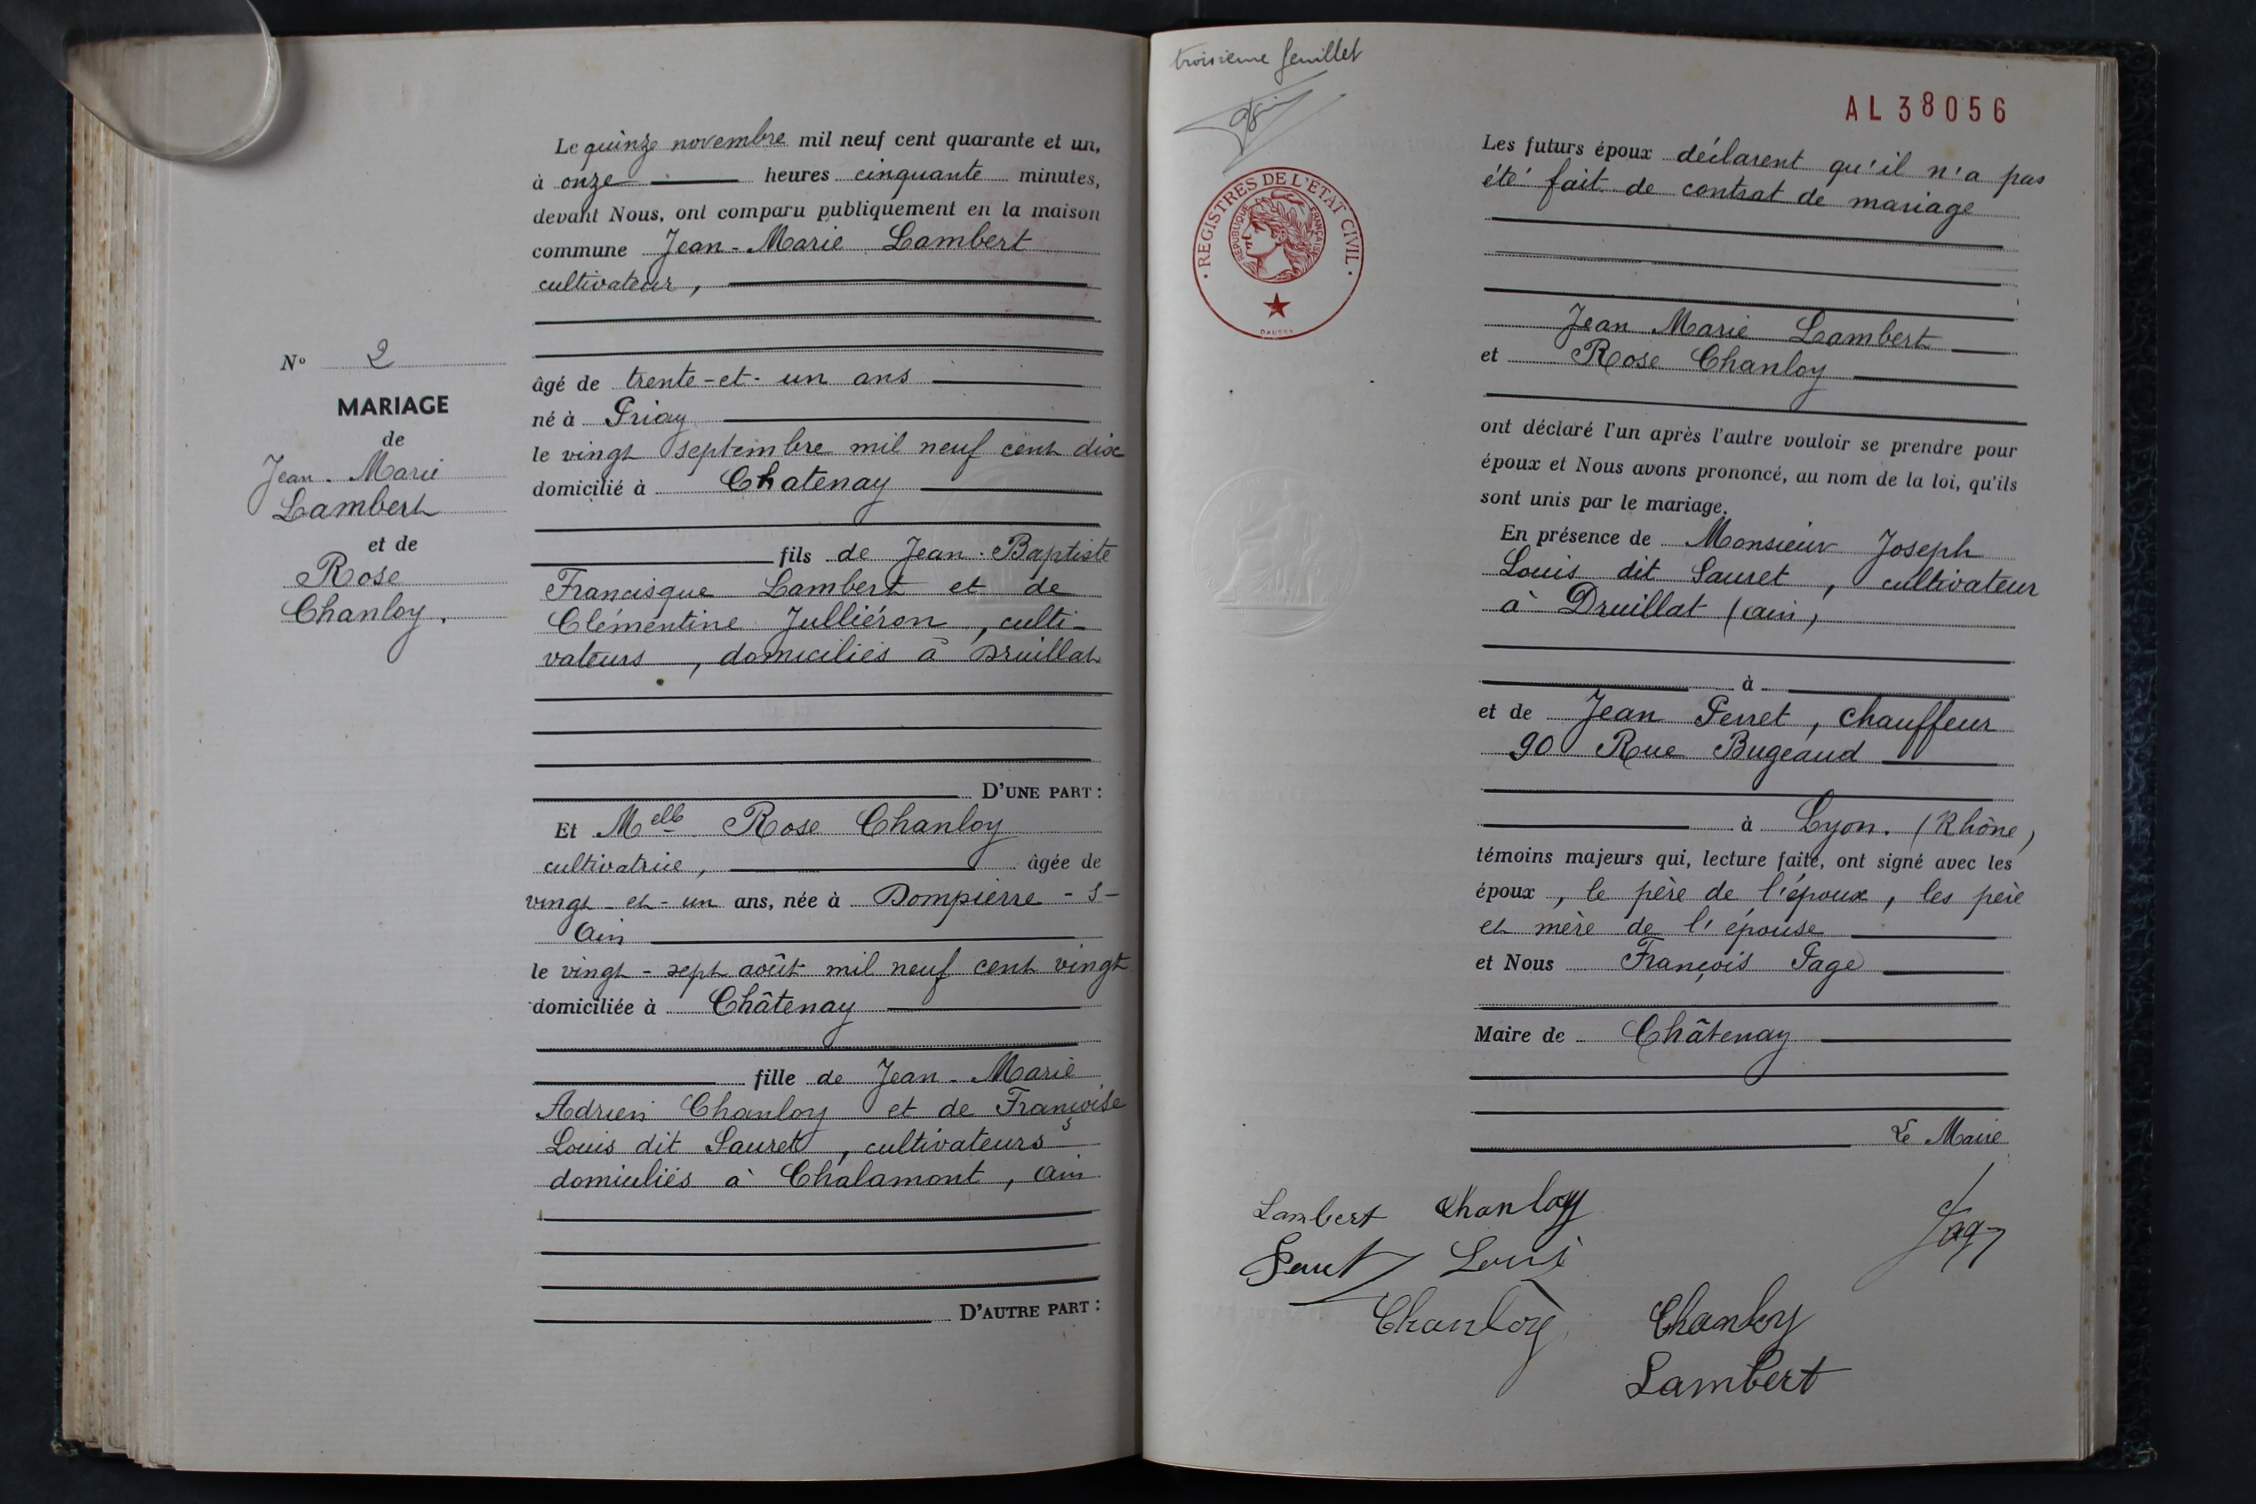 N° 2
MARIAGE
de
Jean-Marie
Lambert
et de
Rose
Chanloy.
Le quinze novembre mil neuf cent quarante et un,
à onze heures cinquante minutes,
devant Nous, ont comparu publiquement en la maison
commune Jean-Marie Lambert
cultivateur,
âgé de trente-et-un ans
né à Priay
le vingt septembre mil neuf cent dix
domicilié à Chatenay
fils de Jean-Baptiste
Francisque Lambert et de
Clémentine Julliéron, culti-
vateurs, domiciliés à Druillat
D'UNE PART :
Et Melle Rose Chanloy
cultivatrice, âgée de
vingt-et-un ans, née à Dompierre-s-
Ain
le vingt-sept août mil neuf cent vingt
domiciliée à Châtenay
fille de Jean-Marie
Adrien Chanloy et de Françoise
Louis dit Sauret, cultivateurs
domiciliés à Chalamont, Ain
D'AUTRE PART :
troisième feuillet
AL 38056
REGISTRES DE L'ETAT CIVIL
REPUBLIQUE FRANÇAISE
Les futurs époux déclarent qu'il n'a pas
été fait de contrat de mariage
Jean Marie Lambert
et Rose Chanloy
ont déclaré l'un après l'autre vouloir se prendre pour
époux et Nous avons prononcé, au nom de la loi, qu'ils
sont unis par le mariage.
En présence de Monsieur Joseph
Louis dit Sauret, cultivateur
à Druillat (ain)
à
et de Jean Perret, chauffeur
90 Rue Bugeaud
à Lyon. (Rhône)
témoins majeurs qui, lecture faite, ont signé avec les
époux, le père de l'époux, les père
et mère de l'épouse
et Nous François Page
Maire de Châtenay
Le Maire
Lambert Chanloy
Louis
Page
Chanloy Chanloy
Lambert